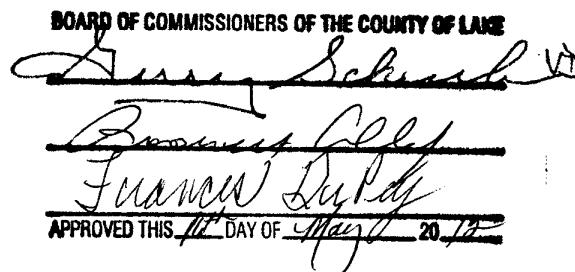 BOARD OF COMMISSIONERS OF THE COUNTY OF LAKE
Gerry Scheub
Roosevelt Allen
Frances DuPey
APPROVED THIS DAY OF May 20 12